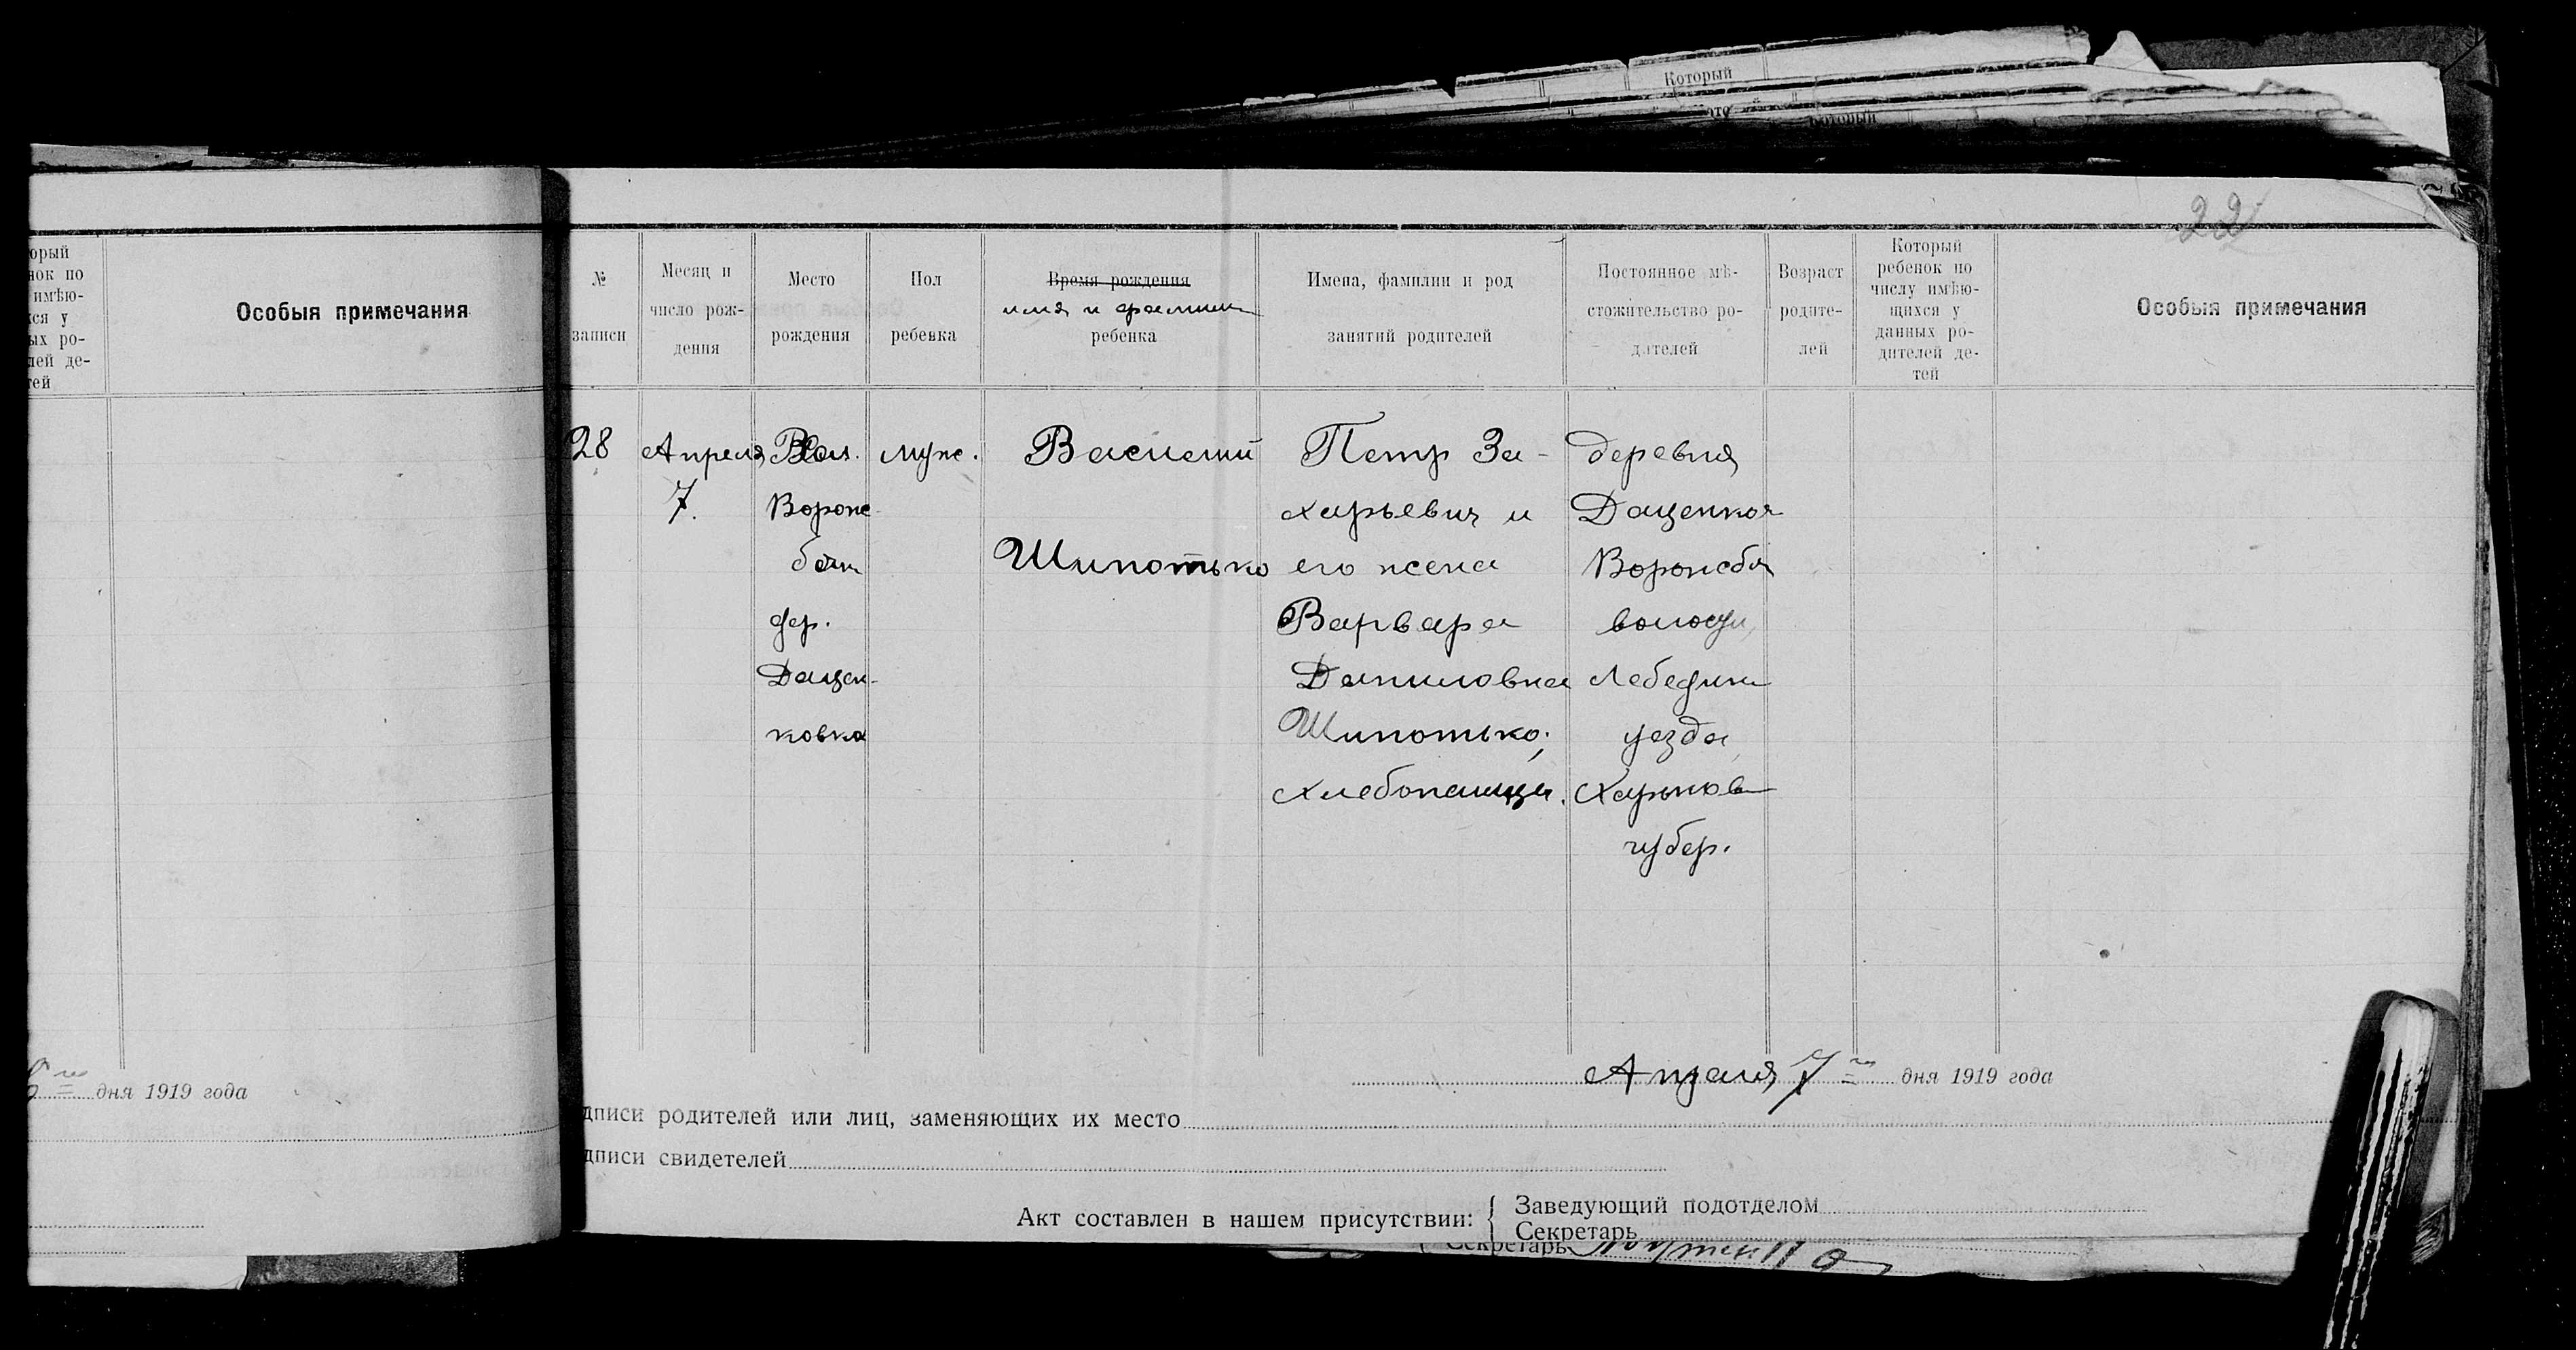 Который
Который
22
орый
нок по
имѣю-
хся у
ых ро-
лей де-
тей
Особыя примечания
№
записи
Месяц и
число рож-
дения
Место
рождения
Пол
ребенка
Время рождения
имя и фамилия
ребенка
Имена, фамилии и род
занятий родителей
Постоянное мѣ-
стожительство ро-
дителей
Возраст
родите-
лей
Который
ребенок по
числу имѣю-
щихся у
данных ро-
дителей де-
тей
Особыя примечания
28
Апреля
7.
Вол.
Ворож
бян
дер.
Дацен-
ковка
муж.
Василий
Шипотько
Петр За-
харьевич и
его жена
Варвара
Даниловна
Шипотько;
хлебопашцы.
деревня
Даценков
Ворожбян
волости,
Лебедин
уезда,
Харьков
губер.
дня 1919 года
Апреля 7го дня 1919 года
дписи родителей или лиц, заменяющих их место
дписи свидетелей
Акт составлен в нашем присутствии:
Заведующий подотделом
Секретарь
Секретарь